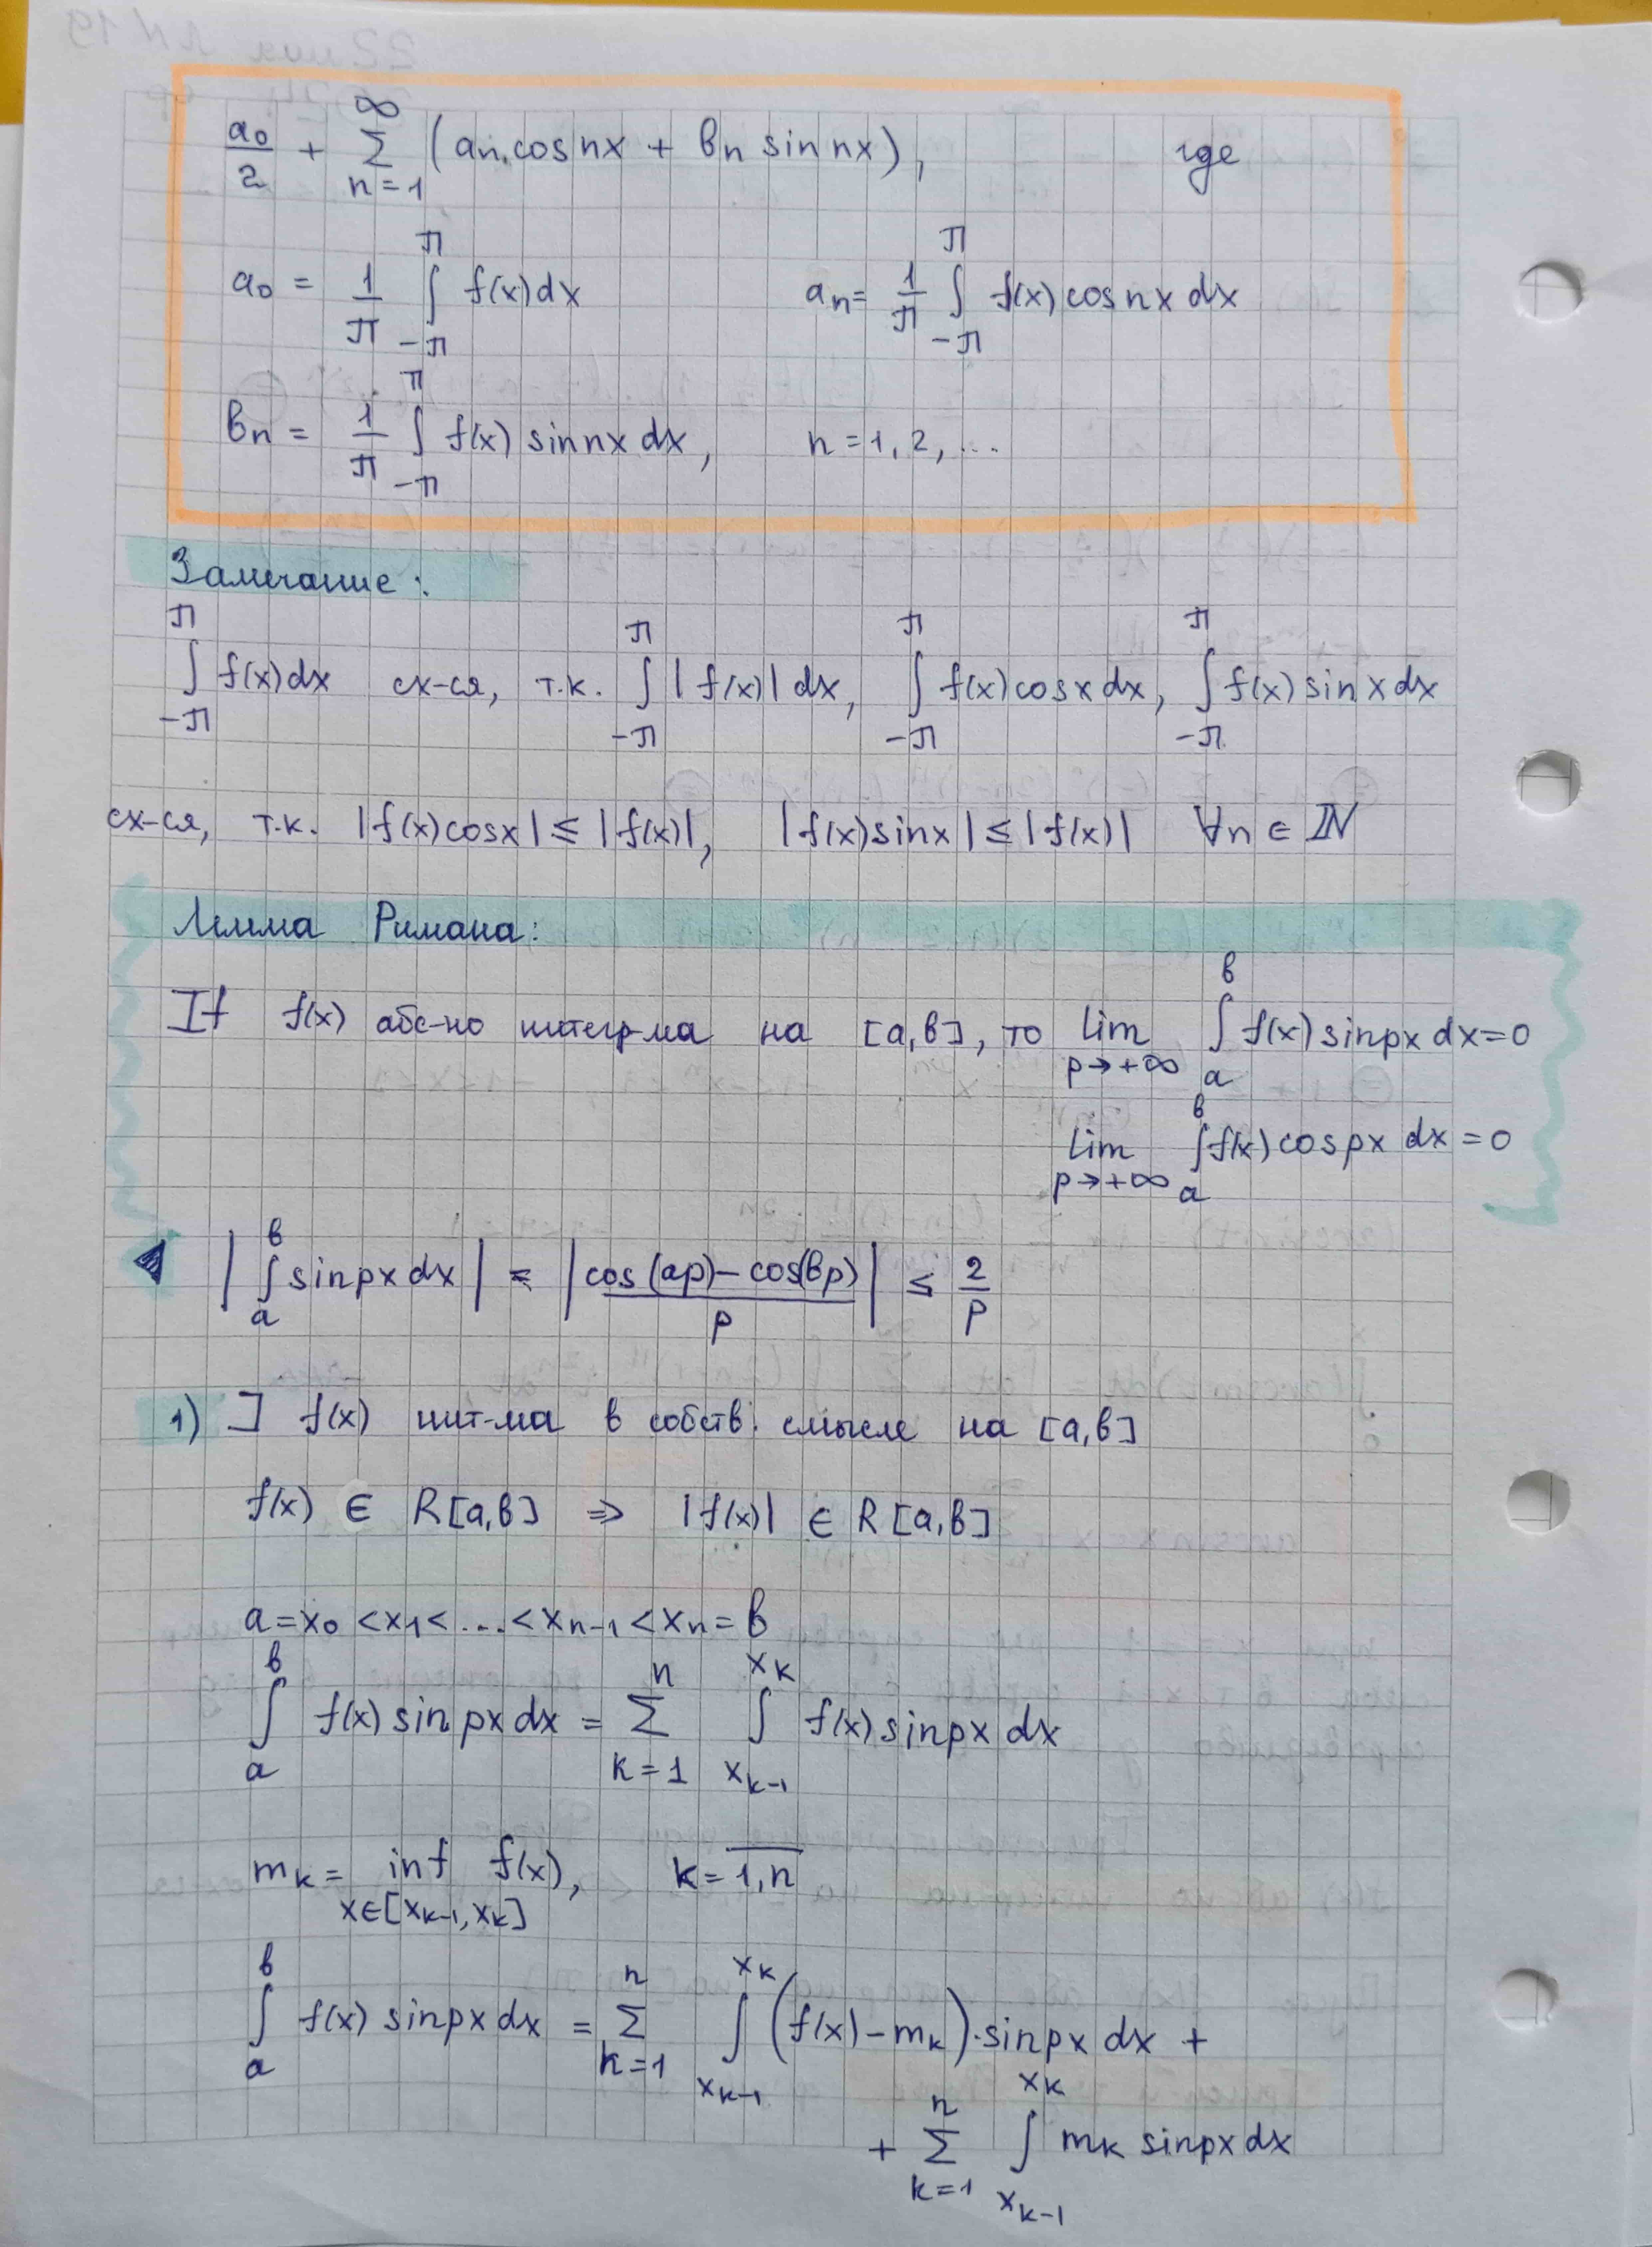 a₀/2 + ∞∑n=1 (aₙ cos nx + bₙ sin nx), где
a₀ = 1/π ∫_{-π}^{π} f(x)dx aₙ = 1/π ∫_{-π}^{π} f(x) cos nx dx
bₙ = 1/π ∫_{-π}^{π} f(x) sin nx dx, n = 1, 2, ...
Замечание:
∫_{-π}^{π} f(x)dx сх-ся, т.к. ∫_{-π}^{π} |f(x)| dx, ∫_{-π}^{π} f(x)cosx dx, ∫_{-π}^{π} f(x) sinx dx
сх-ся, т.к. |f(x)cosx| ≤ |f(x)|, |f(x)sinx| ≤ |f(x)| ∀n ∈ ℕ
Лемма Римана:
If f(x) абс-но интегр-ма на [a,b], то lim_{p→+∞} ∫_{a}^{b} f(x) sinpx dx = 0
lim_{p→+∞} ∫_{a}^{b} f(x) cospx dx = 0
◀ |∫_{a}^{b} sinpx dx| = |(cos(ap) − cos(bp))/p| ≤ 2/p
1) ] f(x) инт-ма в собств. смысле на [a,b]
f(x) ∈ R[a,b] ⇒ |f(x)| ∈ R[a,b]
a = x₀ < x₁ < ... < xₙ₋₁ < xₙ = b
∫_{a}^{b} f(x) sin px dx = ∑_{k=1}^{n} ∫_{x_{k-1}}^{x_k} f(x) sinpx dx
m_k = inf_{x∈[x_{k-1}, x_k]} f(x), k = \overline{1,n}
∫_{a}^{b} f(x) sinpx dx = ∑_{k=1}^{n} ∫_{x_{k-1}}^{x_k} (f(x) − m_k)·sinpx dx +
+ ∑_{k=1}^{n} ∫_{x_{k-1}}^{x_k} m_k sinpx dx